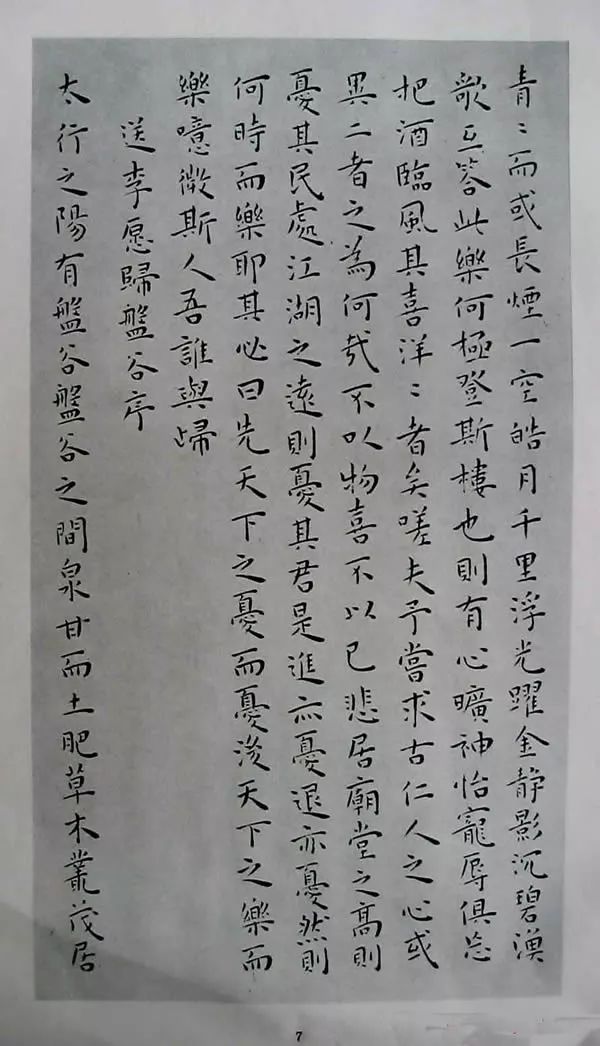 青〻而或長煙一空皓月千里浮光躍金静影沉碧漁
歌互答此樂何極登斯樓也則有心曠神怡寵辱俱忘
把酒臨風其喜洋〻者矣嗟夫予嘗求古仁人之心或
異二者之為何哉不以物喜不以己悲居廟堂之高則
憂其民處江湖之遠則憂其君是進亦憂退亦憂然則
何時而樂耶其必曰先天下之憂而憂後天下之樂而
樂噫微斯人吾誰與歸
送李愿歸盤谷序
太行之陽有盤谷盤谷之間泉甘而土肥草木叢茂居
7